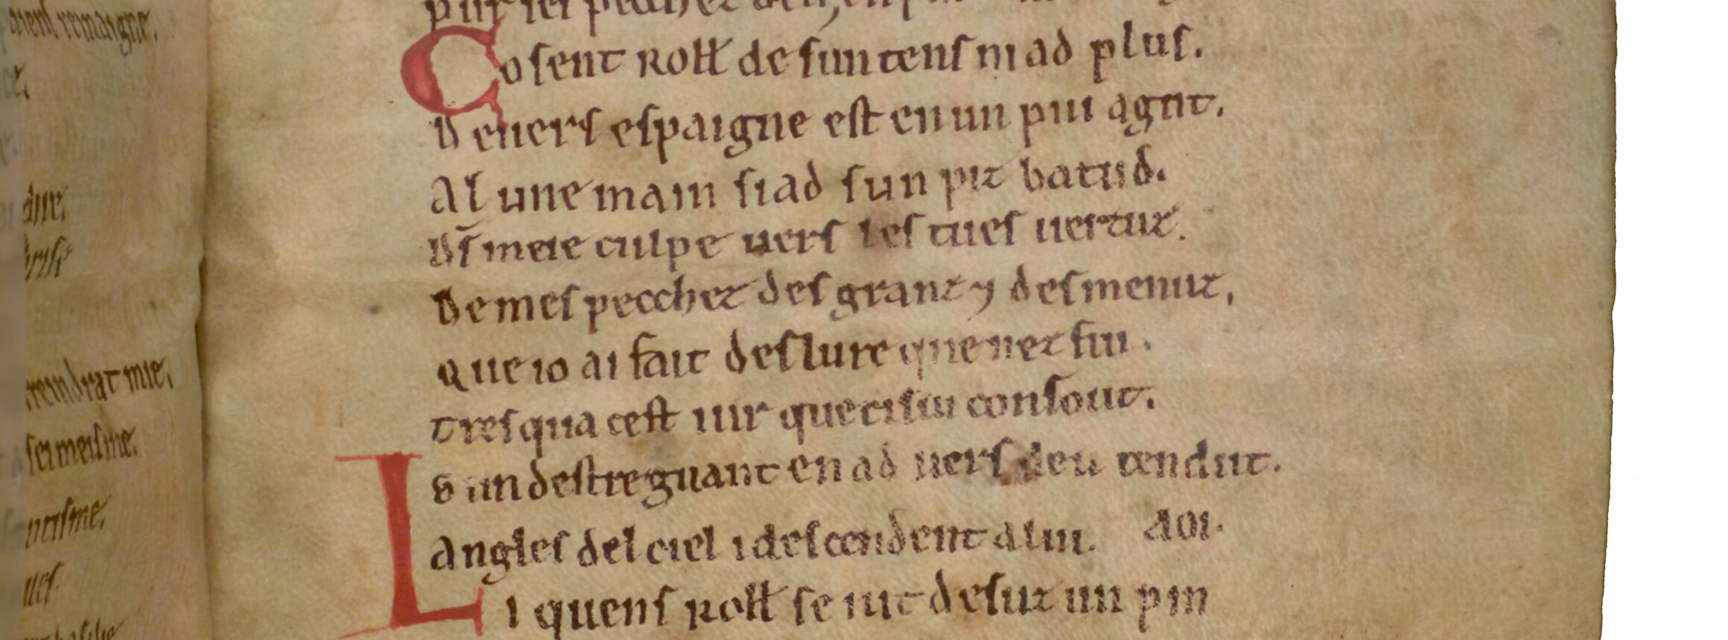 Co sent roll de sun tens ni ad plus.
Deuers espaigne est en un pui agut.
Al une main si ad sun piz batud.
Ds meie culpe uers les tues uertuz.
De mes pecchez des granz ⁊ des menuz,
que io ai fait des lure que nez fui.
tresqua cest iur que ci sui consout.
sun destre guant en ad uers deu tendut.
Angles del ciel i descendent a lui. AOI.
Li quens roll se iut desuz un pin